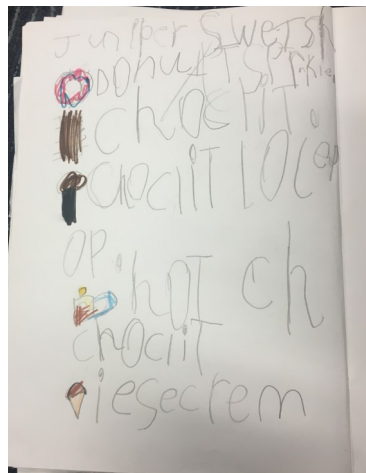 Juniper Swetsh
Donut Sprinkle
chocliT.
chocliT LOLep
OP.
hoT ch
chocliT
iesecrem